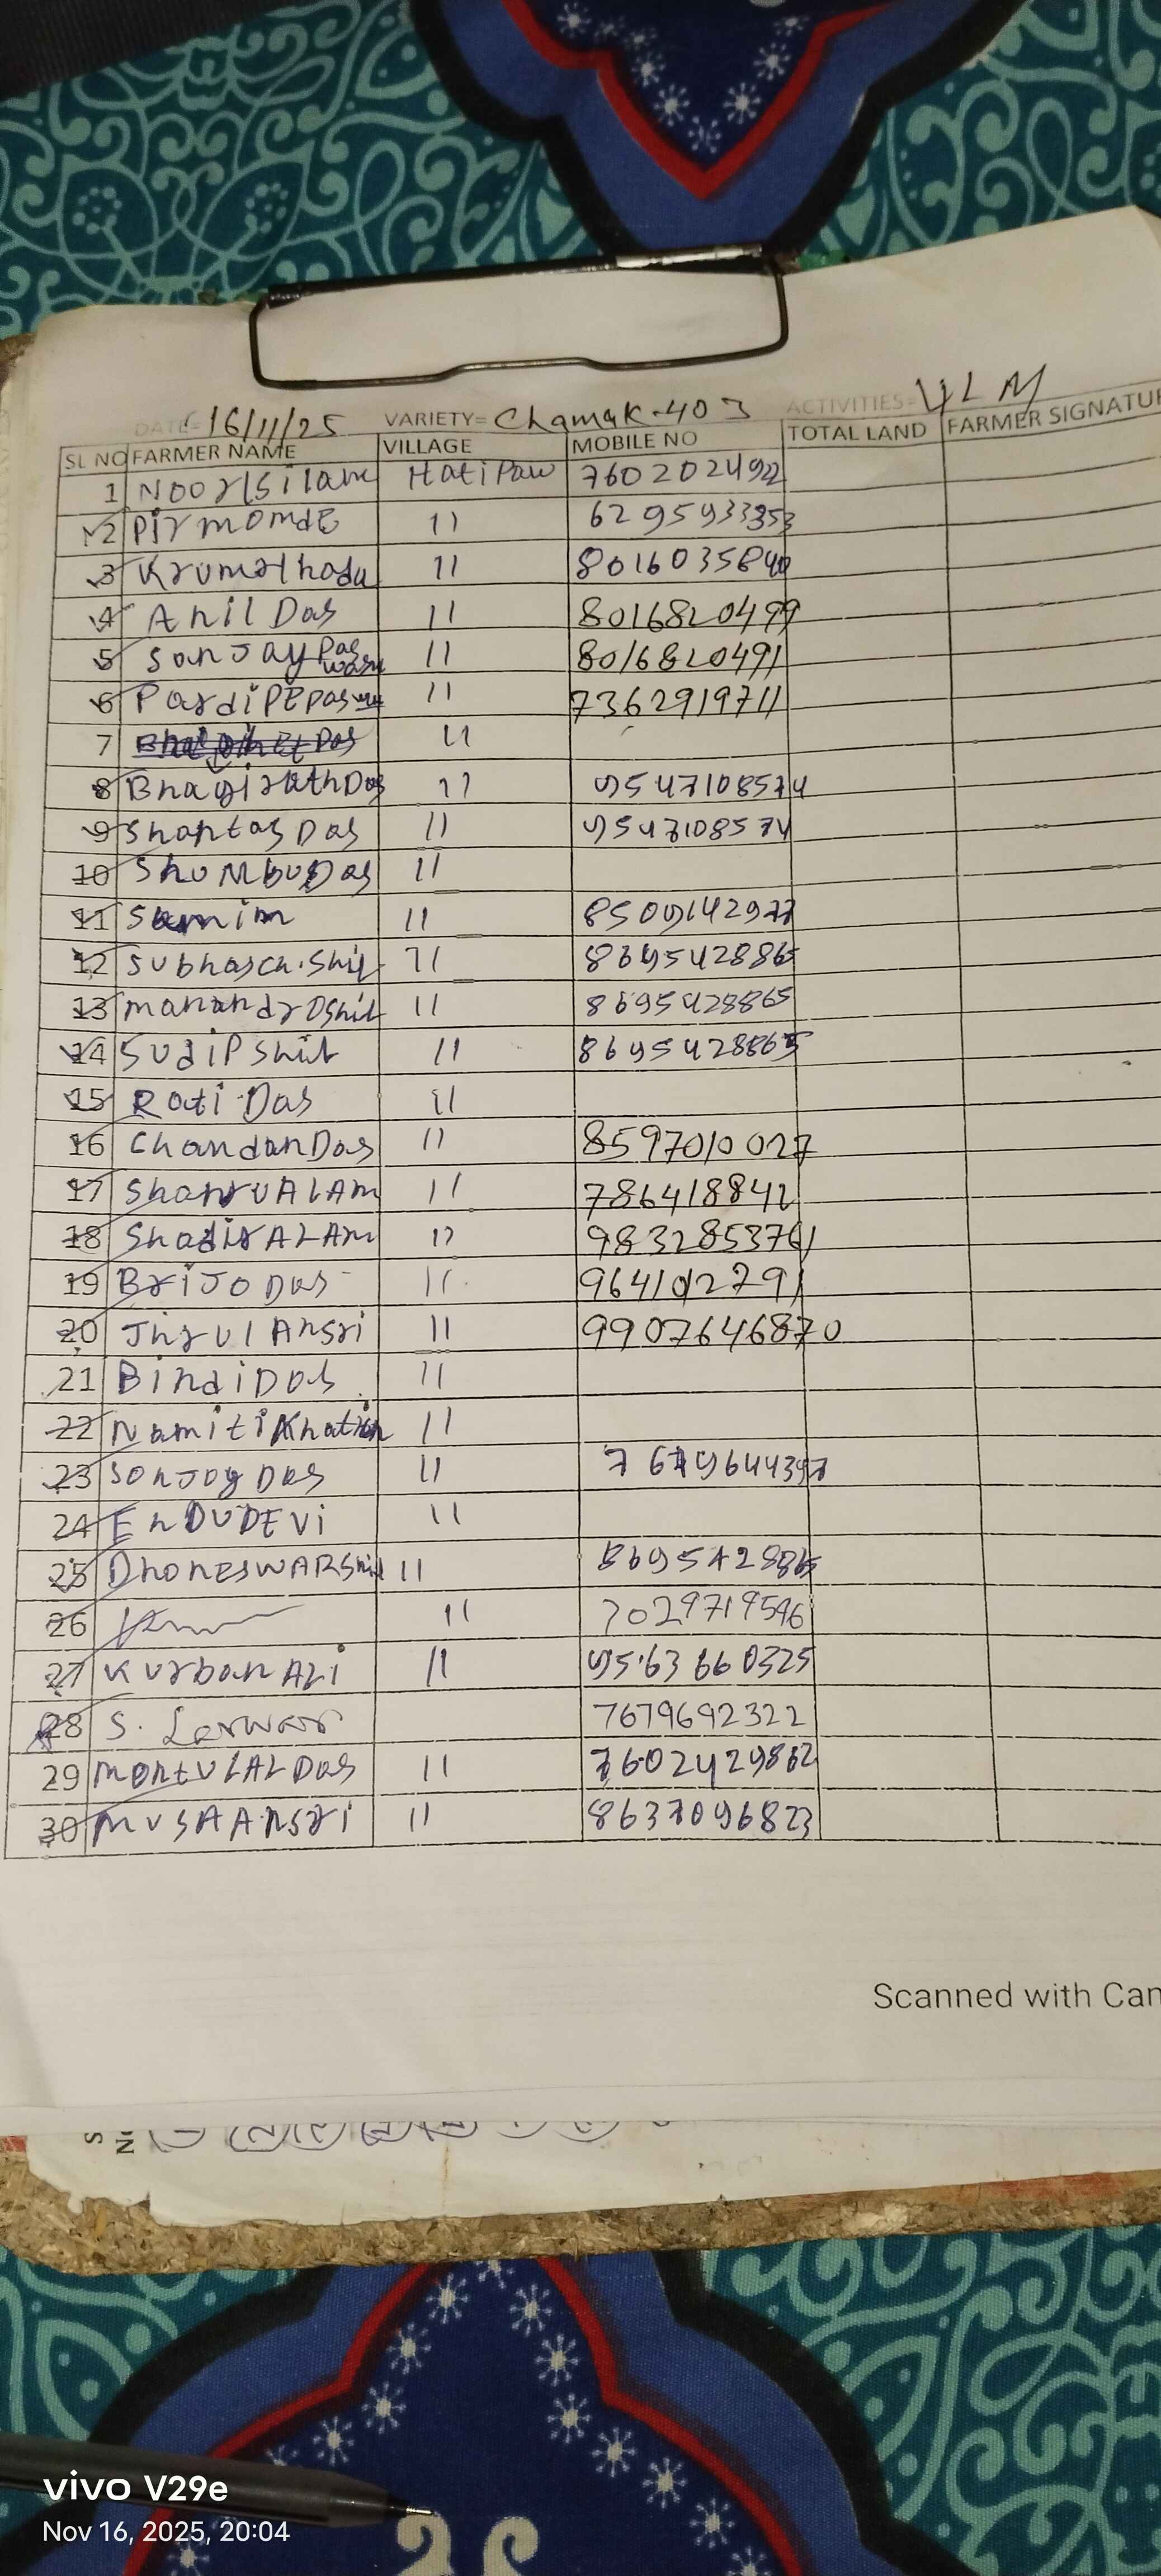 DATE= 16/11/25 VARIETY= Chamak-403 ACTIVITIES= VLM
SL NO FARMER NAME VILLAGE MOBILE NO TOTAL LAND FARMER SIGNATUR
1 Noorlsilam Hatipaw 7602024922
2 Pirmomde 11 6295933353
3 11 8016035840
4 Anil Das 11 8016820499
5 Sonjay Pas 11 8016820491
6 11 7362919711
7 11
8 BhagirathDas 11 9547108574
9 Shantas Das 11 9547108574
10 ShUMbuDas 11
11 Samim 11 8509142977
12 Subhasch.Shil 11 8695428865
13 11 8695428865
14 SudiP Shil 11 8695428865
15 Rati Das 11
16 ChandanDas 11 8597010027
17 11 786418842
18 11 9832853761
19 BriJo Das 11 964102791
20 11 9907646870
21 BindiDas 11
22 Namiti Khatun 11
23 SonJoy Das 11
24 EnDUDEVi 11
25 DhonESWARShil 11 8695428865
26 11 7029719596
27 Kurban ALi 11 9563660325
28 S. 7679692322
29 MontULALDas 11 7602429862
30 MUSAAnsri 11 8637096823
Scanned with Can
vivo V29e
Nov 16, 2025, 20:04